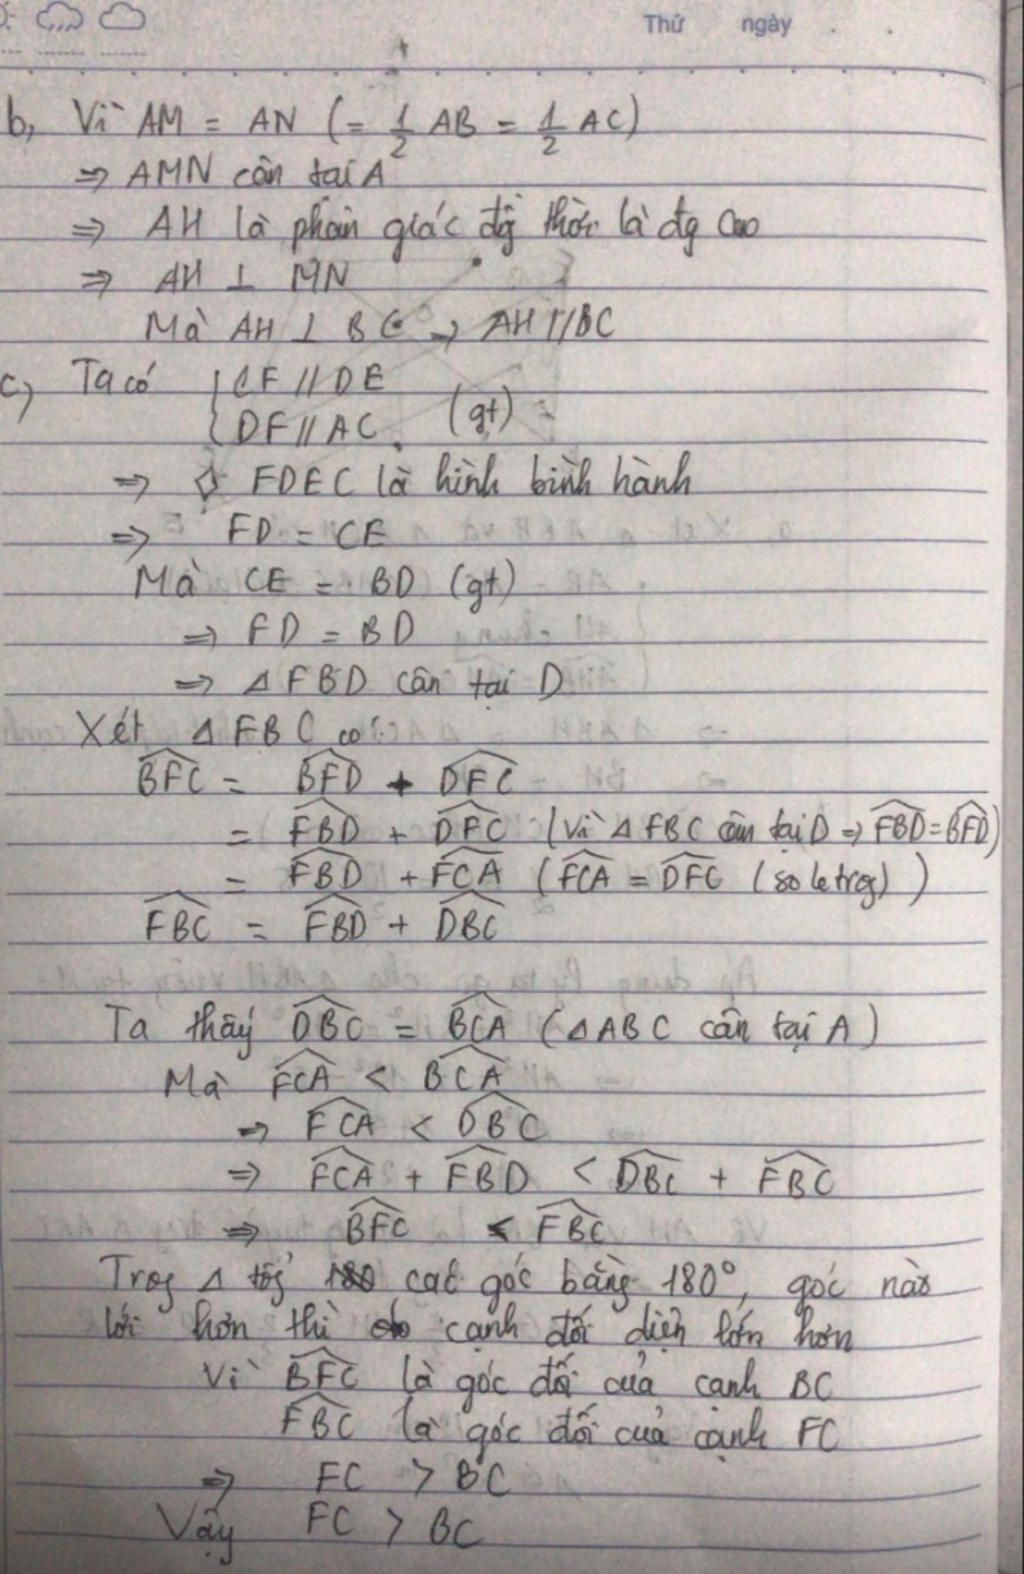 Thứ ngày
b, Vì AM = AN (= 1/2 AB = 1/2 AC)
⇒ AMN cân tại A
⇒ AH là phân giác đg thời là đg cao
⇒ AH ⊥ MN
Mà AH ⊥ BC ⇒ AH // BC
c) Ta có { CF // DE
{ DF // AC (gt)
⇒ ◇ FDEC là hình bình hành
⇒ FD = CE
Mà CE = BD (gt)
⇒ FD = BD
⇒ Δ FBD cân tại D
Xét Δ FBC có:
\widehat{BFC} = \widehat{BFD} + \widehat{DFC}
= \widehat{FBD} + \widehat{DFC} (Vì Δ FBC cân tại D ⇒ \widehat{FBD} = \widehat{BFD})
= \widehat{FBD} + \widehat{FCA} (\widehat{FCA} = \widehat{DFC} (so le trog))
\widehat{FBC} = \widehat{FBD} + \widehat{DBC}
Ta thấy \widehat{DBC} = \widehat{BCA} (Δ ABC cân tại A)
Mà \widehat{FCA} < \widehat{BCA}
⇒ \widehat{FCA} < \widehat{DBC}
⇒ \widehat{FCA} + \widehat{FBD} < \widehat{DBC} + \widehat{FBC}
⇒ \widehat{BFC} < \widehat{FBC}
Trog Δ tổg các góc bằng 180°, góc nào
lới hơn thì cạnh đối diện lớn hơn
Vì \widehat{BFC} là góc đối của cạnh BC
\widehat{FBC} là góc đối của cạnh FC
⇒ FC > BC
Vậy FC > BC